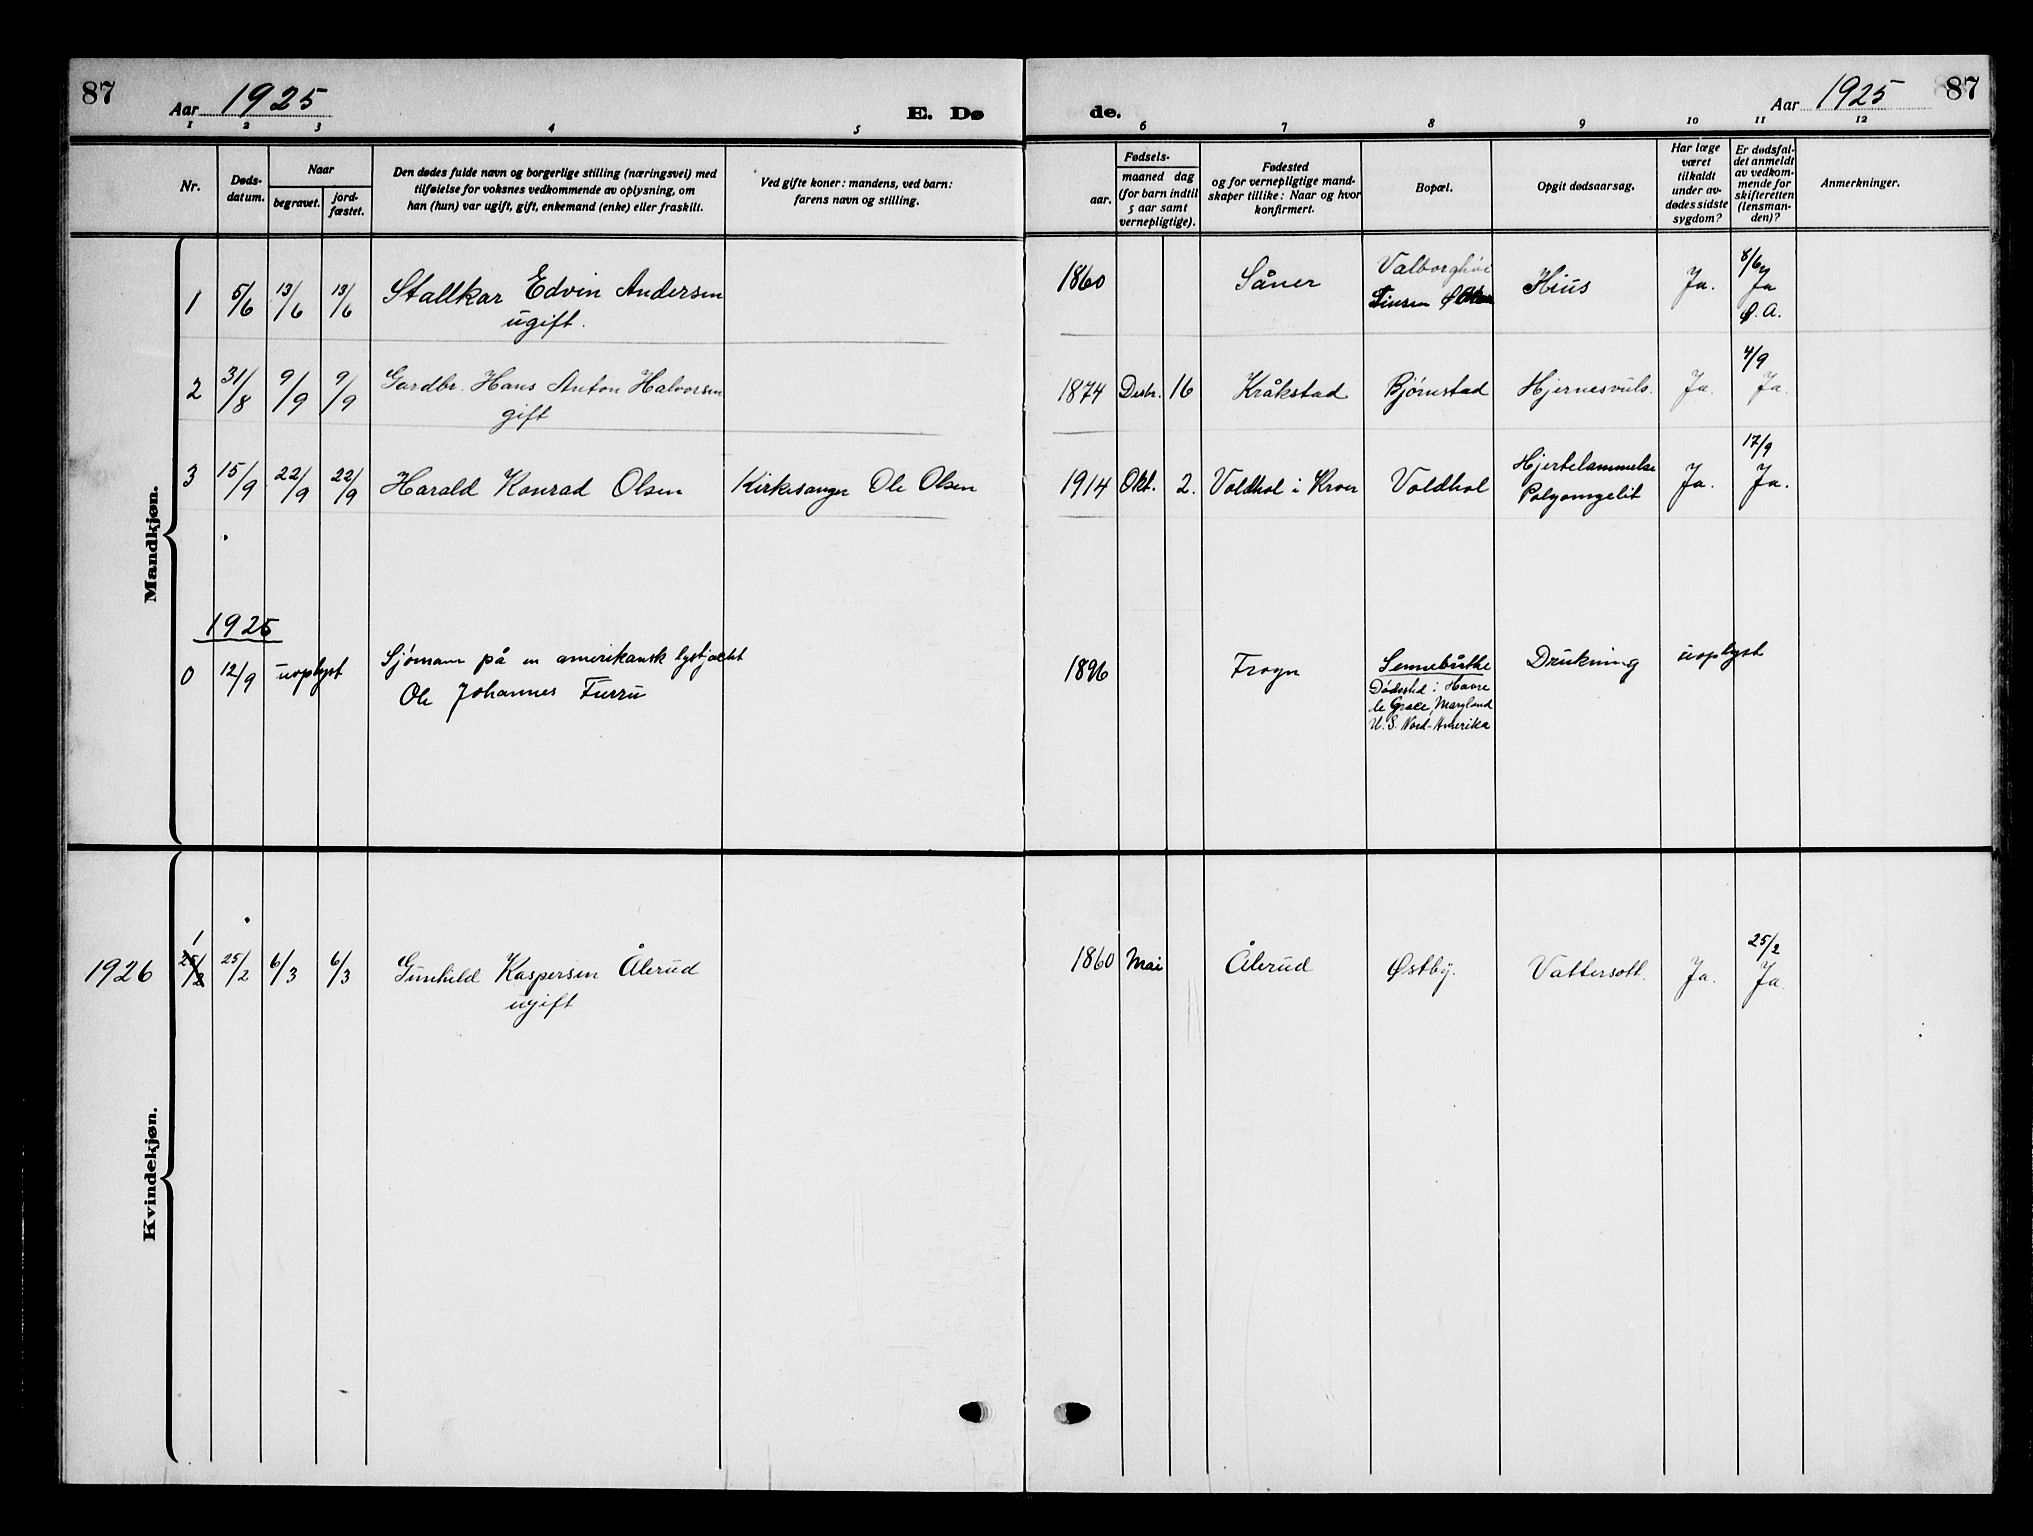 87
Aar 1925
E. Dø
de.
Aar 1925
87
1 2 3 4 5 6 7 8 9 10 11 12
Nr.
Døds-
datum.
Naar
begravet.
jord-
fæstet.
Den dødes fulde navn og borgerlige stilling (næringsvei) med
tilføielse for voksnes vedkommende av oplysning, om
han (hun) var ugift, gift, enkemand (enke) eller fraskilt.
Ved gifte koner: mandens, ved barn:
farens navn og stilling.
Fødsels-
aar.
maaned dag
(for barn indtil
5 aar samt
vernepligtige).
Fødested
og for vernepligtige mand-
skaper tillike: Naar og hvor
konfirmert.
Bopæl.
Opgit dødsaarsag.
Har læge
været
tilkaldt
under av-
dødes sidste
sygdom?
Er dødsfal-
det anmeldt
av vedkom-
mende for
skifteretten
(lensman-
den)?
Anmerkninger.
Mandkjøn.
1 5/6 13/6 13/6 Stallkar Edvin Andersen 1860 Såner Valborghøi Hius Ja. 8/6 Ja
ugift. Ø. A.
2 31/8 9/9 9/9 Gardbr. Hans Anton Halvorsen 1874 Desbr. 16 Kråkstad Bjørnstad Hjernesvuls. Ja. 4/9 Ja.
gift
3 15/9 22/9 22/9 Harald Konrad Olsen Kirkesanger Ole Olsen 1914 Okt. 2. Voldhol i Kroer Voldhol Hjertelammelse Ja. 17/9 Ja.
1925
0 12/9 uoplyst Sjømann på en amerikansk lystjacht 1896 Frogn Drukning uoplyst
Ole Johannes Furru
Dødssted: Havre
le Grace, Maryland
U. S. Nord-Amerika
Kvindekjøn.
1926 1 25/2 25/2 6/3 6/3 Gunhild Kaspersen Ålerud 1860 Mai Ålerud Østby. Vattersott. Ja. 25/2 Ja.
ugift